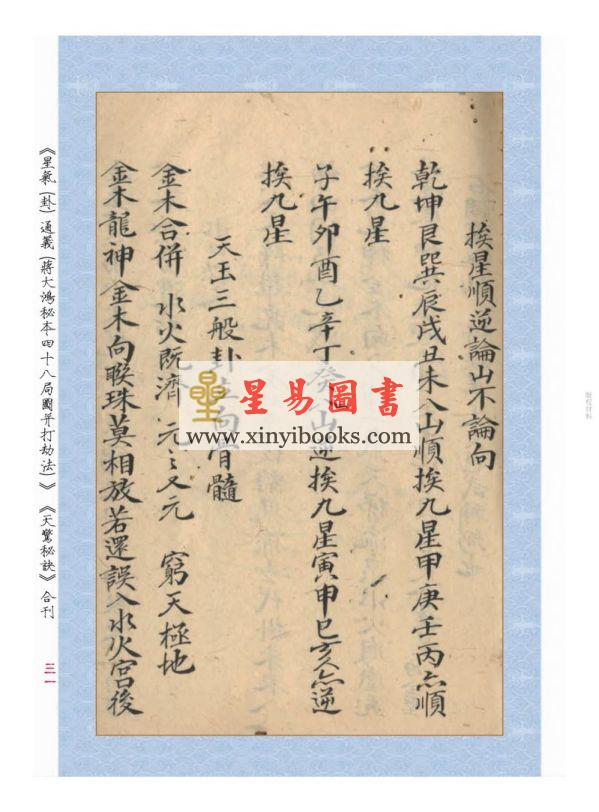 挨星順逆論山不論向
乾坤艮巽辰戌丑未八山順挨九星甲庚壬丙亦順
挨九星
子午卯酉乙辛丁癸八山逆挨九星寅申巳亥亦逆
挨九星
天玉三般卦立向骨髓
金木合併 水火既濟 元之又元 窮天極地
金木龍神金木向联珠莫相放若還誤入水火宮後
星易圖書
www.xinyibooks.com
《星氣(卦)通義(蔣大鴻秘本四十八局圖并打劫法)》《天驚秘訣》合刊
三一
版权材料